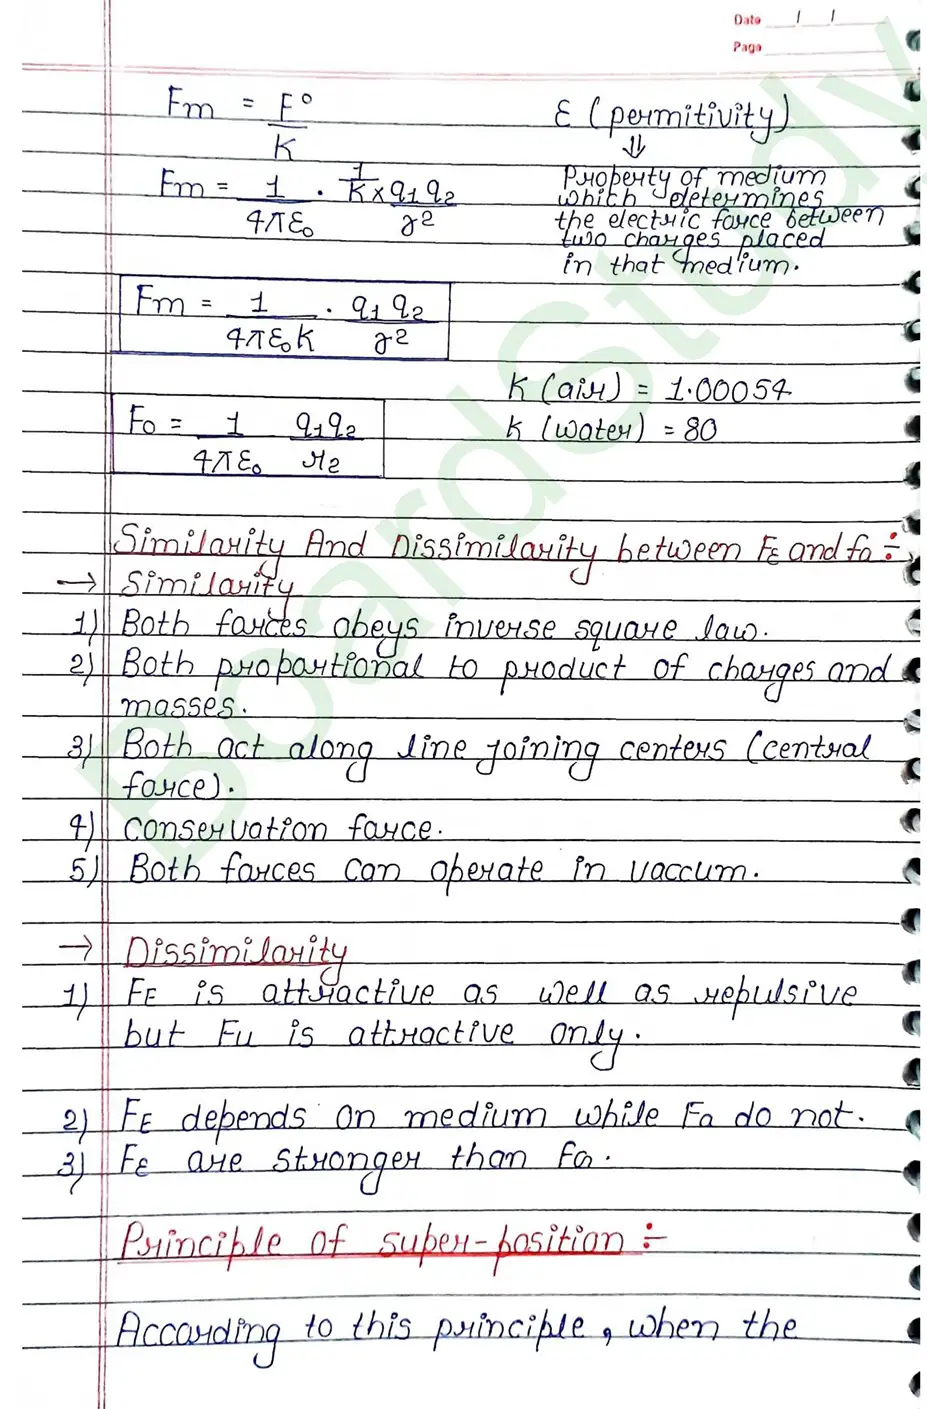 Date / /
Page
Fm = F° / K
ε (permitivity)
⇓
Fm = 1/4πε₀ · 1/K × q₁q₂/r²
Property of medium
which determines
the electric force between
two charges placed
in that medium.
Fm = 1/4πε₀K · q₁q₂/r²
K (air) = 1.00054
F₀ = 1/4πε₀ q₁q₂/r₂
K (water) = 80
Similarity And Dissimilarity between FE and fG ÷
→ Similarity
1) Both farces obeys inverse square law.
2) Both proportional to product of charges and
masses.
3) Both act along line joining centers (central
farce).
4) Conservation farce.
5) Both farces can operate in vaccum.
→ Dissimilarity
1) FE is attractive as well as repulsive
but Fu is attractive only.
2) FE depends on medium while FG do not.
3) FE are stronger than FG.
Principle of super-position ÷
According to this principle, when the
BoardStudy